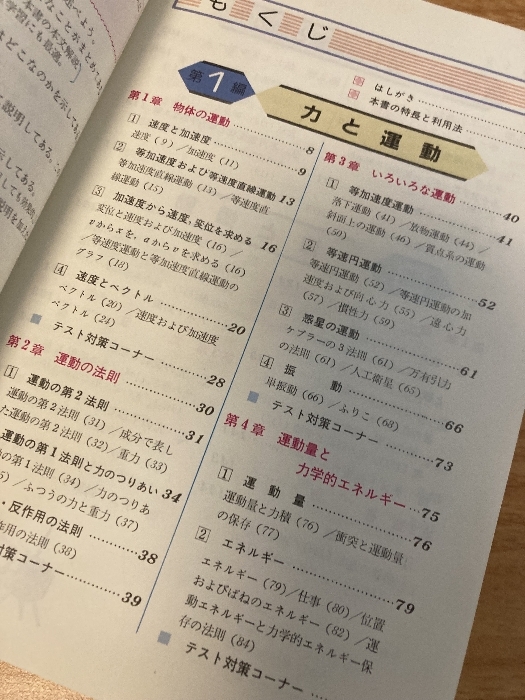 もくじ
はしがき
本書の特長と利用法
第1編 力と運動
第1章 物体の運動 8
1 速度と加速度 9
速度(9)/加速度(11)
2 等加速度および等速度直線運動 13
等加速度直線運動(13)/等速度直
線運動(15)
3 加速度から速度,変位を求める 16
変位と速度および加速度(16)/
vからxを,aからvを求める(16)
/等速度運動と等加速度直線運動の
グラフ(18)
4 速度とベクトル 20
ベクトル(20)/速度および加速度
ベクトル(24)
テスト対策コーナー 28
第2章 運動の法則 30
1 運動の第2法則 31
運動の第2法則(31)/成分で表し
た運動の第2法則(32)/重力(33)
運動の第1法則と力のつりあい 34
の第1法則(34)/力のつりあ
/ふつうの力と重力(37)
・反作用の法則 38
作用の法則(38)
対策コーナー 39
第3章 いろいろな運動 40
1 等加速度運動 41
落下運動(41)/放物運動(44)/
斜面上の運動(46)/質点系の運動
(50)
2 等速円運動 52
等速円運動(52)/等速円運動の加
速度および向心力(55)/遠心力
(57)/慣性力(59)
3 惑星の運動 61
ケプラーの3法則(61)/万有引力
の法則(61)/人工衛星(65)
4 振動 66
単振動(66)/ふりこ(68)
テスト対策コーナー 73
第4章 運動量と
力学的エネルギー 75
1 運動量 76
運動量と力積(76)/衝突と運動量
の保存(77)
2 エネルギー 79
エネルギー(79)/仕事(80)/位置
およびばねのエネルギー(82)/運
動エネルギーと力学的エネルギー保
存の法則(84)
テスト対策コーナー